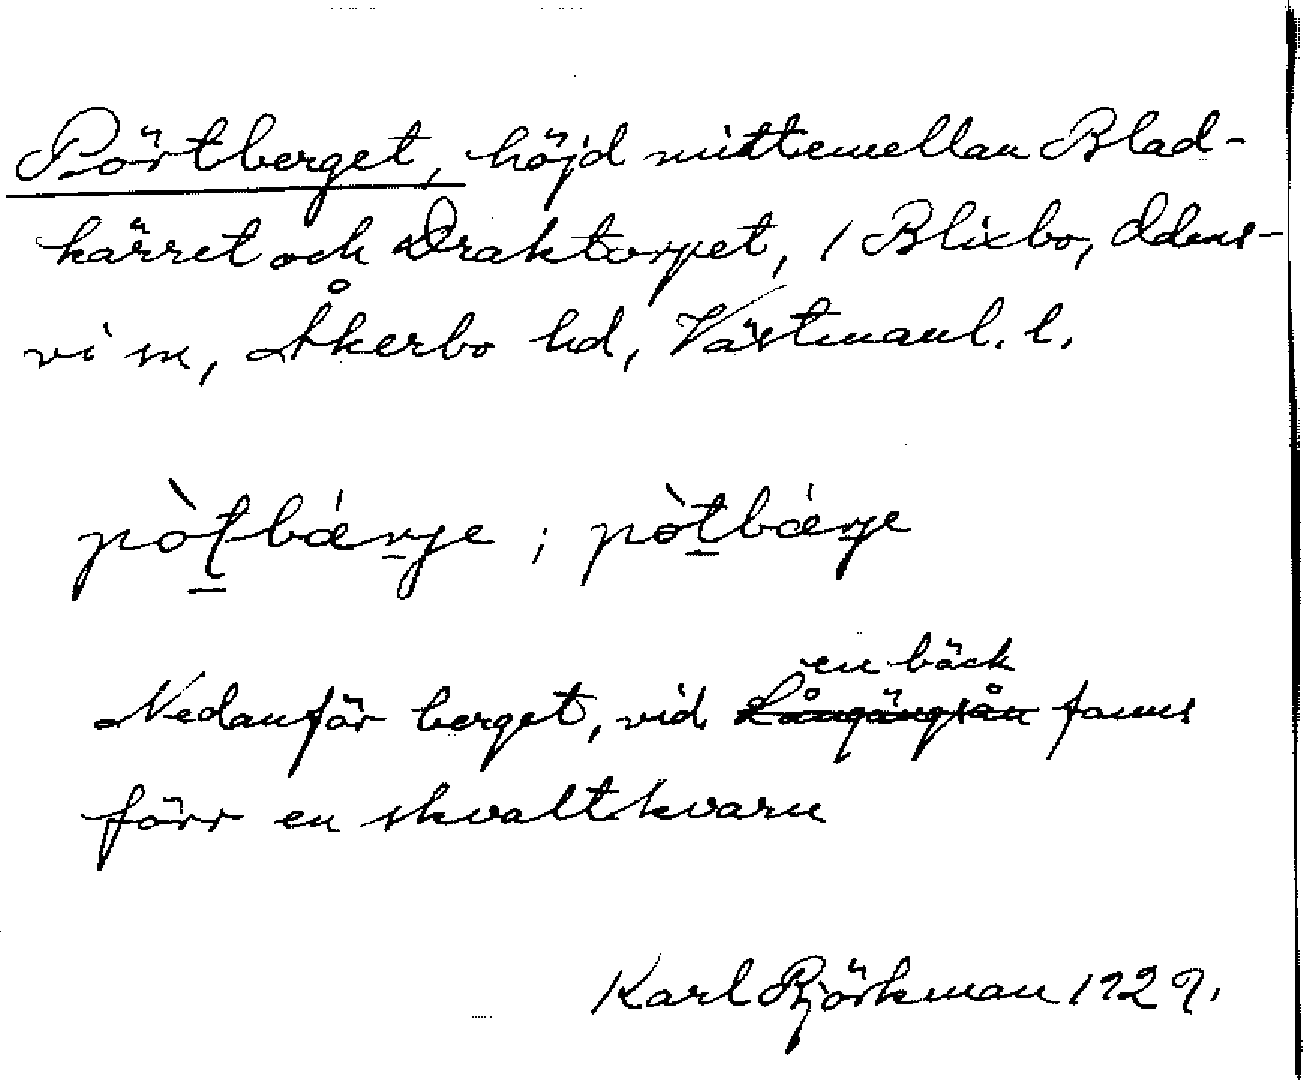 Pörtberget, höjd mittemellan Blad-
kärret och Draktorpet, / Blixbo, Odens-
vi sn, Åkerbo hd, Västmanl. l.
pòtbárje ; pòtbárje
en bäck
Nedanför berget, vid Långängsån fanns
förr en skvaltkvarn
Karl Björkman 1929.